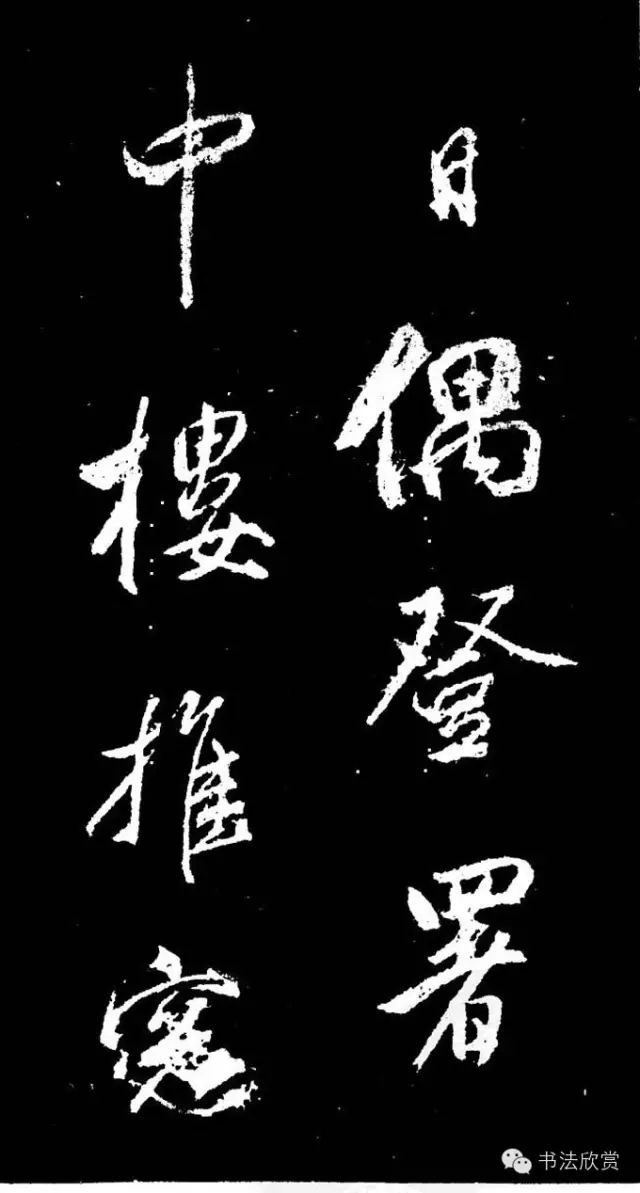 日偶登署
中樓推窻
书法欣赏